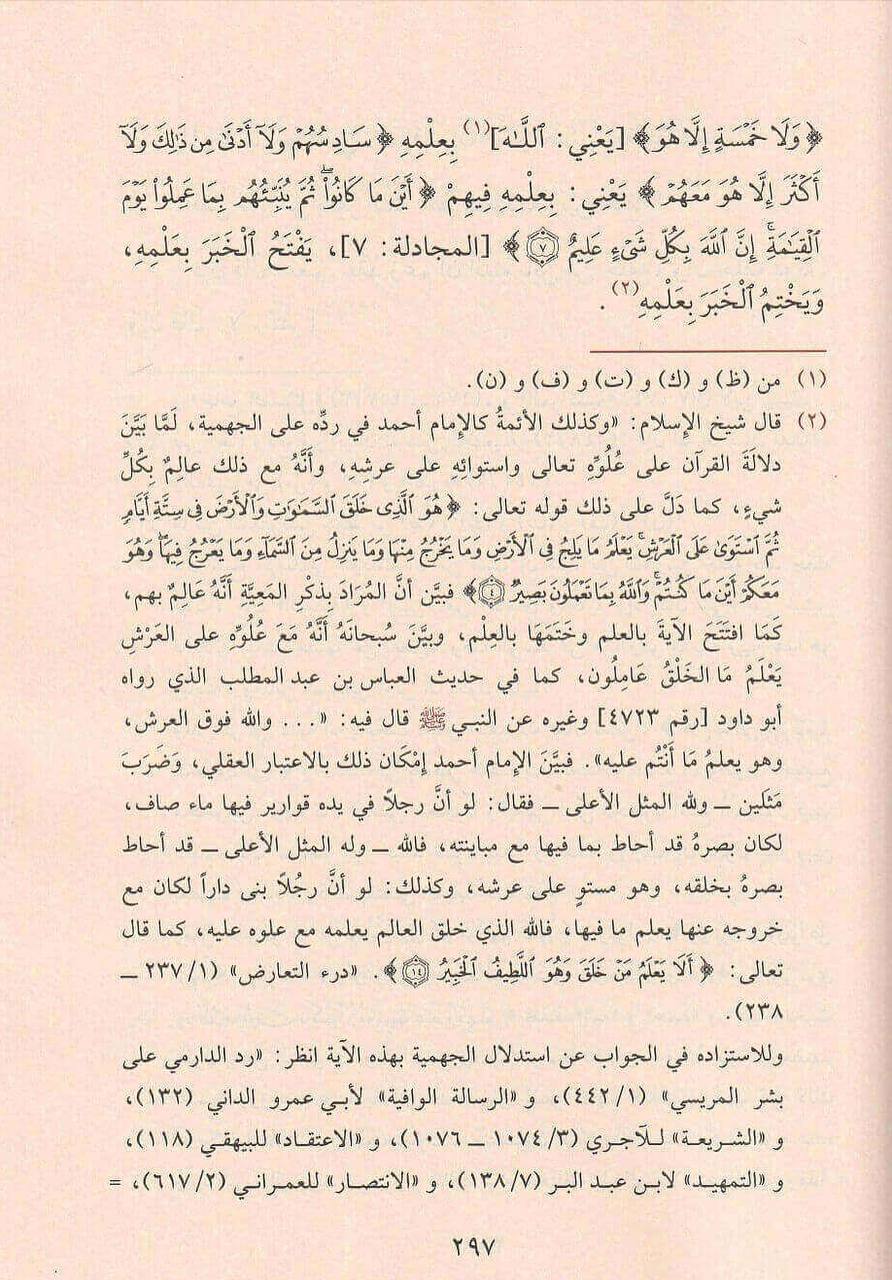 ﴿ وَلَا خَمْسَةٍ إِلَّا هُوَ ﴾ [يَعْنِي: ٱللَّـهَ](١) بِعِلْمِهِ ﴿ سَادِسُهُمْ وَلَآ أَدْنَىٰ مِن ذَٰلِكَ وَلَآ
أَكْثَرَ إِلَّا هُوَ مَعَهُمْ ﴾ يَعْنِي: بِعِلْمِهِ فِيهِمْ ﴿ أَيْنَ مَا كَانُوا۟ ۖ ثُمَّ يُنَبِّئُهُم بِمَا عَمِلُوا۟ يَوْمَ
ٱلْقِيَـٰمَةِ ۚ إِنَّ ٱللَّهَ بِكُلِّ شَىْءٍ عَلِيمٌ ۝٧ ﴾ [المجادلة: ٧]، يَفْتَحُ ٱلْخَبَرَ بِعِلْمِهِ،
وَيَخْتِمُ ٱلْخَبَرَ بِعِلْمِهِ(٢).
(١) من (ظ) و (ك) و (ت) و (ف) و (ن).
(٢) قال شيخ الإسلام: «وكذلك الأئمةُ كالإمام أحمد في ردِّه على الجهمية، لَمَّا بَيَّنَ
دلالَةَ القرآن على عُلُوِّهِ تعالى واستوائِهِ على عرشِهِ، وأنَّهُ مع ذلك عالِمٌ بِكُلِّ
شيءٍ، كما دَلَّ على ذلك قوله تعالى: ﴿ هُوَ ٱلَّذِى خَلَقَ ٱلسَّمَـٰوَٰتِ وَٱلْأَرْضَ فِى سِتَّةِ أَيَّامٍ
ثُمَّ ٱسْتَوَىٰ عَلَى ٱلْعَرْشِ ۚ يَعْلَمُ مَا يَلِجُ فِى ٱلْأَرْضِ وَمَا يَخْرُجُ مِنْهَا وَمَا يَنزِلُ مِنَ ٱلسَّمَآءِ وَمَا يَعْرُجُ فِيهَا ۖ وَهُوَ
مَعَكُمْ أَيْنَ مَا كُنتُمْ ۚ وَٱللَّهُ بِمَا تَعْمَلُونَ بَصِيرٌ ۝٤ ﴾ فبيَّن أنَّ المُرَادَ بِذكْرِ المَعِيَّةِ أنَّهُ عَالِمٌ بهم،
كَمَا افتَتَحَ الآيةَ بالعلم وخَتَمَهَا بالعِلْم، وبيَّنَ سُبحانَهُ أنَّهُ مَعَ عُلُوِّهِ على العَرْشِ
يَعْلَمُ مَا الخَلْقُ عَامِلُون، كما في حديث العباس بن عبد المطلب الذي رواه
أبو داود [رقم ٤٧٢٣] وغيره عن النبي ﷺ قال فيه: «... والله فوق العرش،
وهو يعلمُ مَا أَنْتُم عليه». فبيَّنَ الإمام أحمد إمْكَان ذلك بالاعتبار العقلي، وَضَرَبَ
مَثَلَين ــ ولله المثل الأعلى ــ فقال: لو أنَّ رجلاً في يده قوارير فيها ماء صاف،
لكان بصرهُ قد أحاط بما فيها مع مباينته، فالله ــ وله المثل الأعلى ــ قد أحاط
بصرهُ بخلقه، وهو مستوٍ على عرشه، وكذلك: لو أنَّ رجُلاً بنى داراً لكان مع
خروجه عنها يعلم ما فيها، فالله الذي خلق العالم يعلمه مع علوه عليه، كما قال
تعالى: ﴿ أَلَا يَعْلَمُ مَنْ خَلَقَ وَهُوَ ٱللَّطِيفُ ٱلْخَبِيرُ ۝١٤ ﴾. «درء التعارض» (١/ ٢٣٧ ــ
٢٣٨).
وللاستزاده في الجواب عن استدلال الجهمية بهذه الآية انظر: «رد الدارمي على
بشر المريسي» (١/ ٤٤٢)، و «الرسالة الوافية» لأبي عمرو الداني (١٣٢)،
و «الشريعة» للآجري (٣/ ١٠٧٤ ــ ١٠٧٦)، و «الاعتقاد» للبيهقي (١١٨)،
و «التمهيد» لابن عبد البر (٧/ ١٣٨)، و «الانتصار» للعمراني (٢/ ٦١٧)، =
٢٩٧